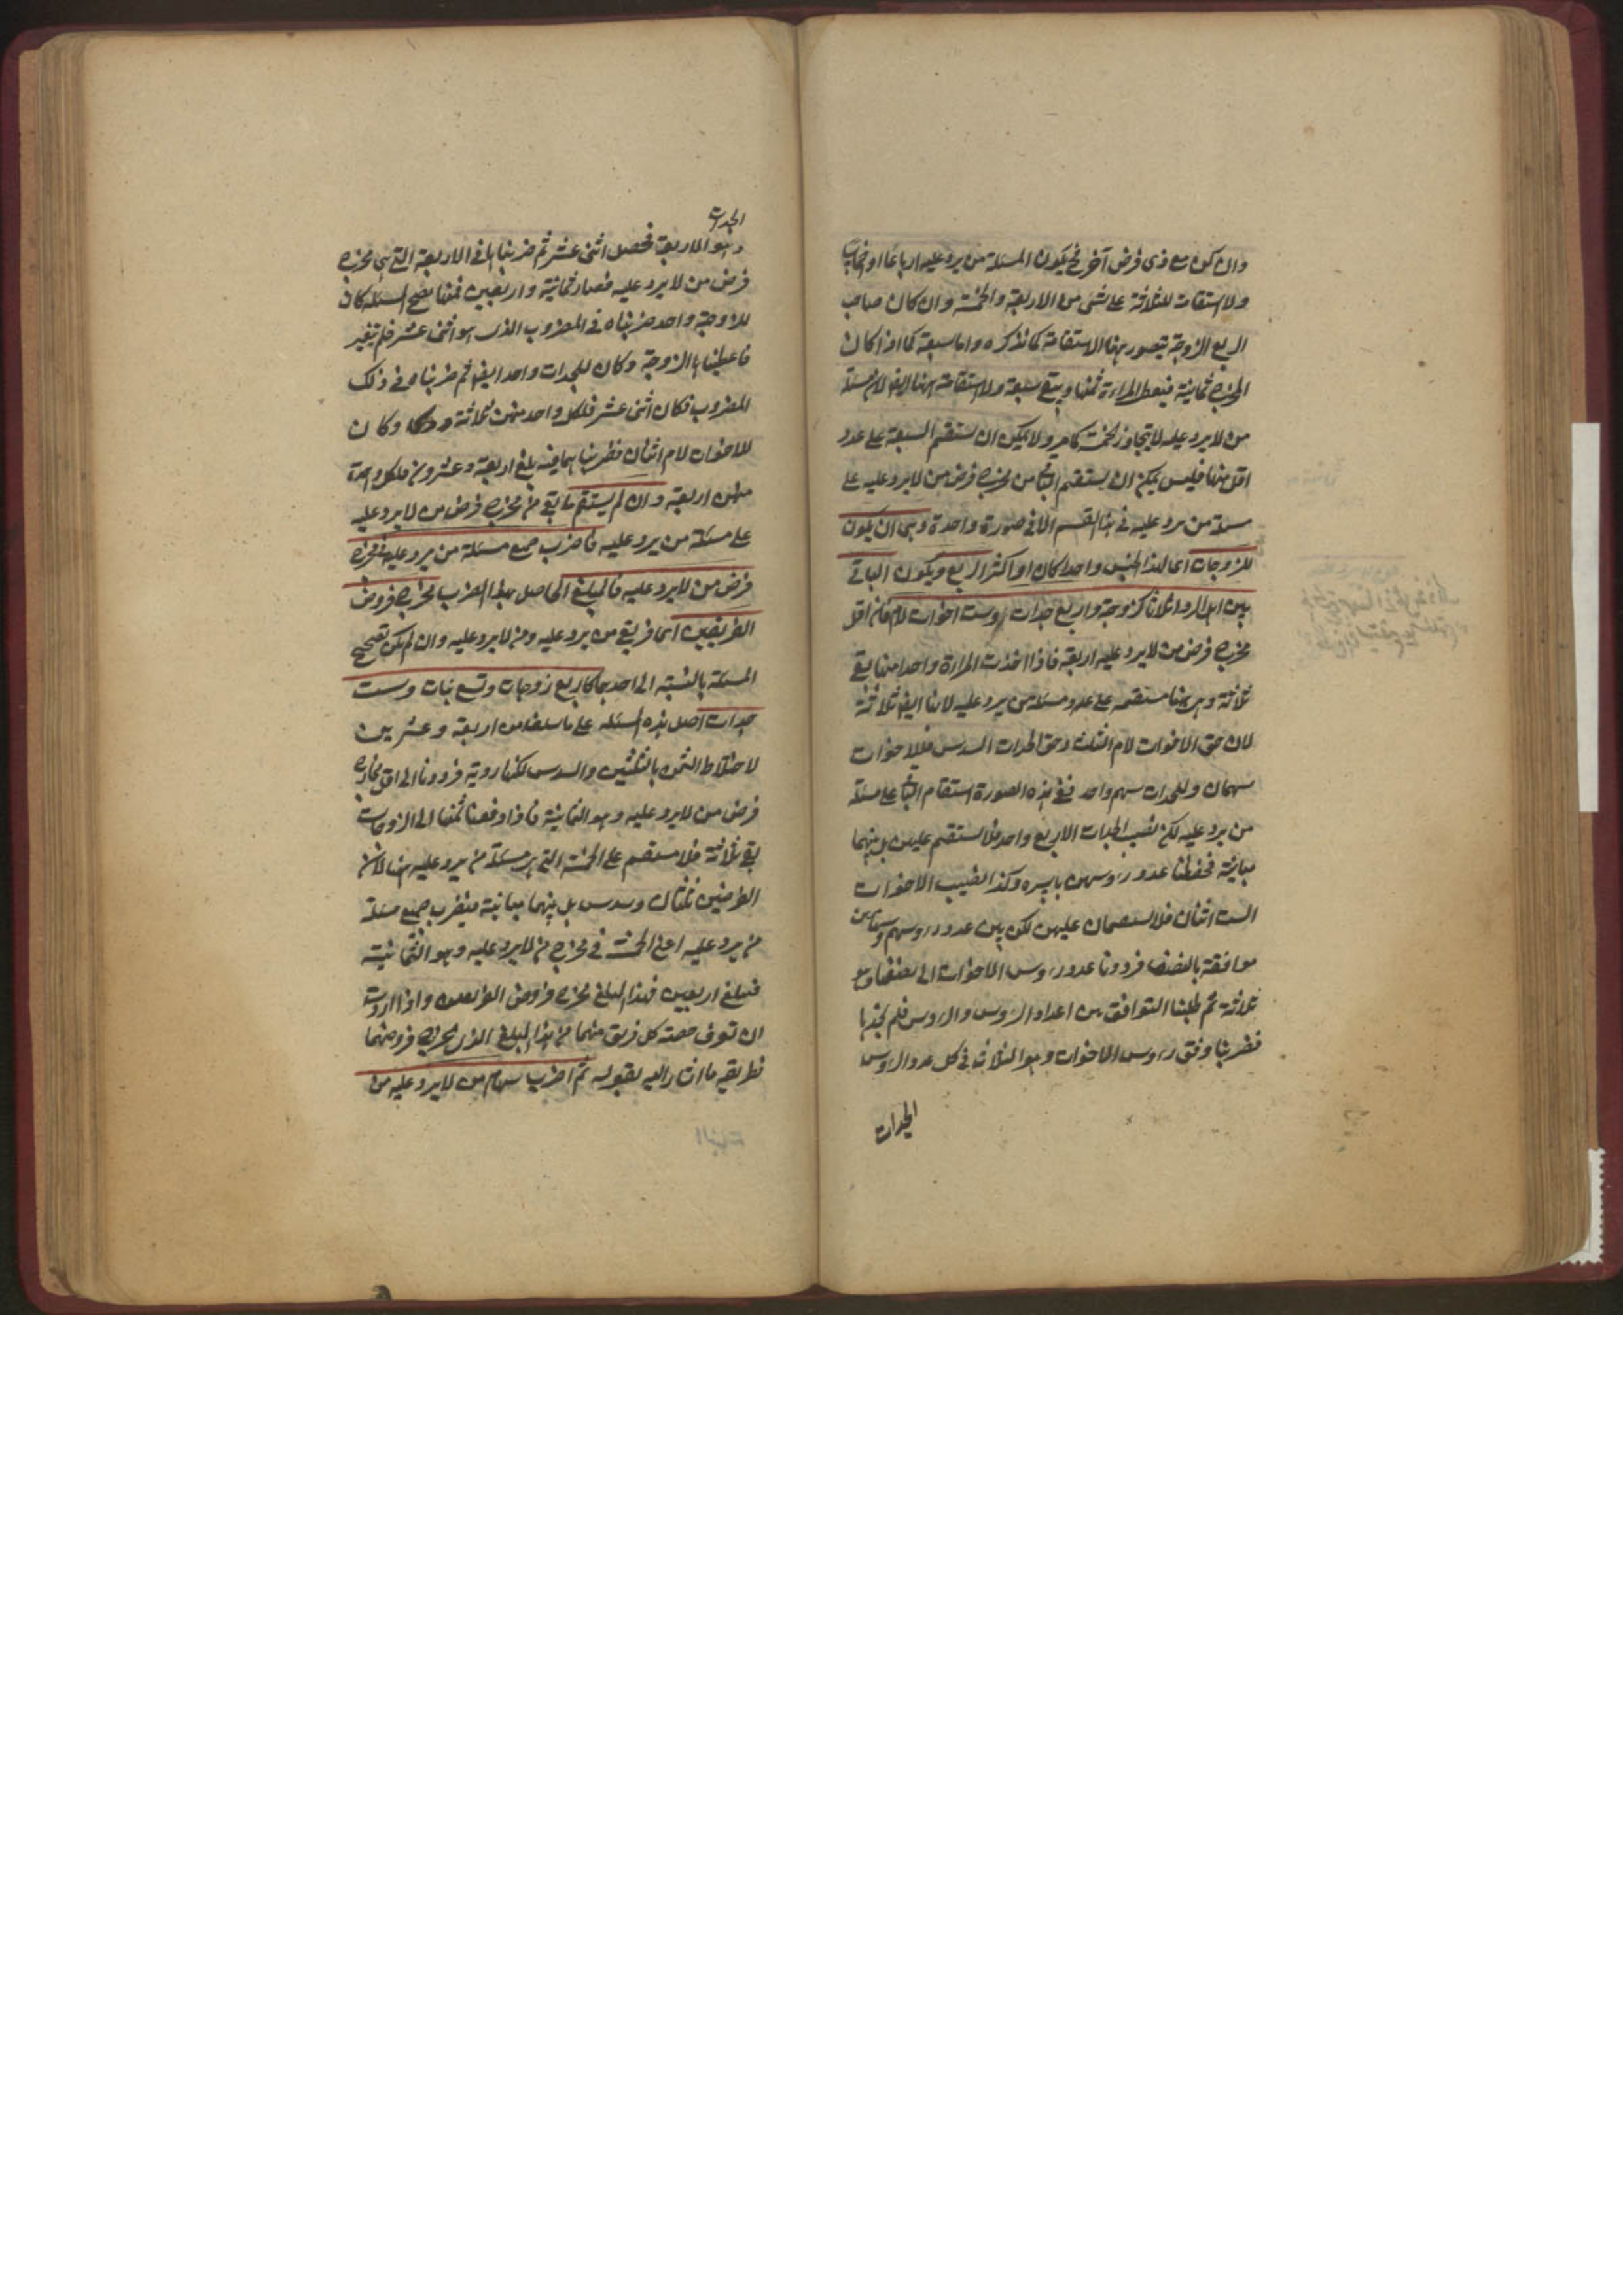 وان كان مع ذى فرض آخر فح يكون المسئلة من يرد عليه ارباعا او اخماسا
ولا استقامة للثلاثة على شئ من الاربعة والخمسة وان كان صاحب
الربع الزوجة يتصور ههنا الاستقامة كما نذكره واما سبعة كما اذا كان
المخرج ثمانية فيعطى المراءة ثمنها ويبقى سبعة ولا استقامة ههنا ايضا لان مسئلة
من لا يرد عليه لا يتجاوز الخمسة كما مر ولا يمكن ان يستقيم السبعة على عدد
اقل منها فليس يمكن ان يستقيم الباقى من مخرج فرض من لا يرد عليه على
مسئلة من يرد عليه فى هذا القسم الا فى صورة واحدة وهى ان يكون
للزوجات اى لهذا الجنس واحدا كان او اكثر الربع ويكون الباقى
بين اهل الرد اثلاثا كزوجة واربع جدات وست اخوات لام فان اقل
مخرج فرض من لا يرد عليه اربعة فاذا اخذت المراءة واحدا منها بقى
ثلاثة وهى ههنا مستقيمة على عدد مسئلة من يرد عليه لانها ايضا ثلاثة
لان حق الاخوات لام الثلث وحق الجدات السدس فللاخوات
سهمان وللجدات سهم واحد ففى هذه الصورة استقام الباقى على مسئلة
من يرد عليه لكن نصيب الجدات الاربع واحد فلا يستقيم عليهن بل بينهما
مباينة فحفظنا عدد رءوسهن باسره وكذا نصيب الاخوات
الست اثنان فلا يستقيمان عليهن لكن بين عدد رءوسهم وسهامهن
موافقة بالنصف فرددنا عدد رءوس الاخوات الى نصفها وهو
ثلاثة ثم طلبنا التوافق بين اعداد الرءوس والرءوس فلم نجدها
فضربنا وفق رءوس الاخوات وهو الثلاث فى كل عدد الرءوس
الجدات
الجدات
وهو الاربعة فحصل اثنى عشر ثم ضربناها فى الاربعة التى هى مخرج
فرض من لا يرد عليه فصار ثمانية واربعين فمنها تصح المسئلة كان
للزوجة واحد ضربناه فى المضروب الذى هو اثنى عشر فلم يتغير
فاعطيناها الزوجة وكان للجدات واحد ايضا ثم ضربناه فى ذلك
المضروب فكان اثنى عشر فلكل واحد منهن ثلاثة وكان
للاخوات لام اثنان فضربناهما فيه بلغ اربعة وعشرين فلكل واحدة
منهن اربعة وان لم يستقم ما بقى من مخرج فرض من لا يرد عليه
على مسئلة من يرد عليه فاضرب جميع مسئلة من يرد عليه فى مخرج
فرض من لا يرد عليه فالمبلغ الحاصل بهذا الضرب مخرج فروض
الفريقين اى فريقى من يرد عليه ومن لا يرد عليه وان لم يكن تصحيح
المسئلة بالنسبة الى احدهما كاربع زوجات وتسع بنات وست
جدات اصل هذه المسئلة على ما سلف من اربعة وعشرين
لاختلاط الثمن بالثلثين والسدس لكنها ردية فرددنا الى اقل مخارج
فرض من لا يرد عليه وهو الثمانية فاذا دفعنا ثمنها الى الزوجات
بقى فلا يستقيم على الخمسة التى هى مسئلة من يرد عليه ههنا لان
الفرضين ثلثان وسدس بل بينهما مباينة فيضرب جميع مسئلة
من يرد عليه اعنى الخمسة فى مخرج من لا يرد عليه وهو الثمانية
فيبلغ اربعين فهذا المبلغ مخرج فروض الفريقين واذا اردت
ان تعرف حصة كل فريق منهما من هذا المبلغ الذى مخرج فروضهما
فطريقه ما اشار اليه بقوله ثم اضرب سهام من لا يرد عليه من